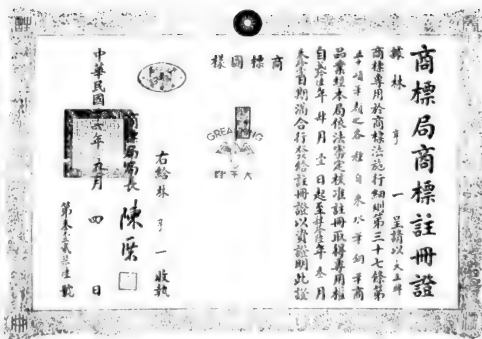 商標局商標註冊證
據林亨一呈請以大王牌
商標專用於商標法施行細則第三十七條第
五十項筆類之各種自來水筆鋼筆商
品業經本局依法審定核准註冊取得專用權
自 年肆月壹日起至 年叁月
日期滿合行發給註冊證以資證明此證
商標圖樣
GREAT KING
大王牌
右給林亨一收執
商標局局長陳匧
中華民國 六年九月四日
第 號